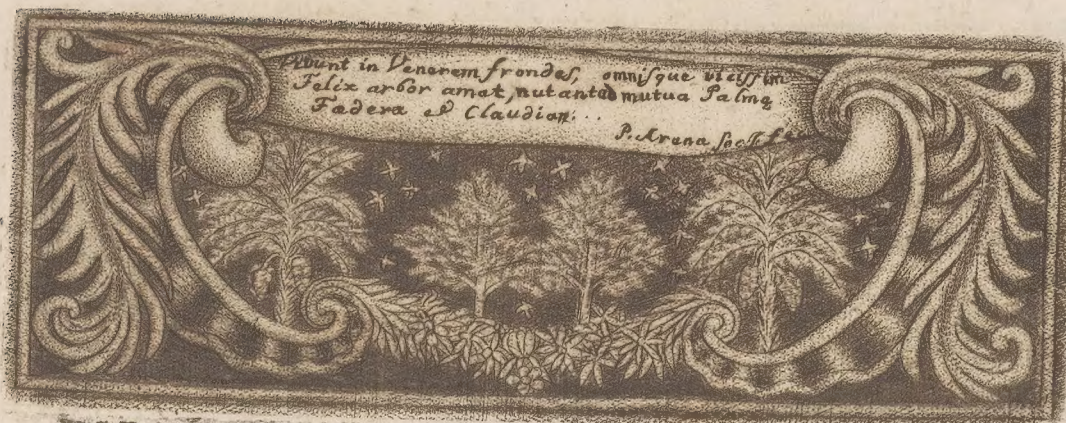 Vivunt in Venerem frondes, omnisque vicissim
Felix arbor amat, nutant ad mutua Palmę
Fædera & Claudian:..
P. Arena Soc. J. fec